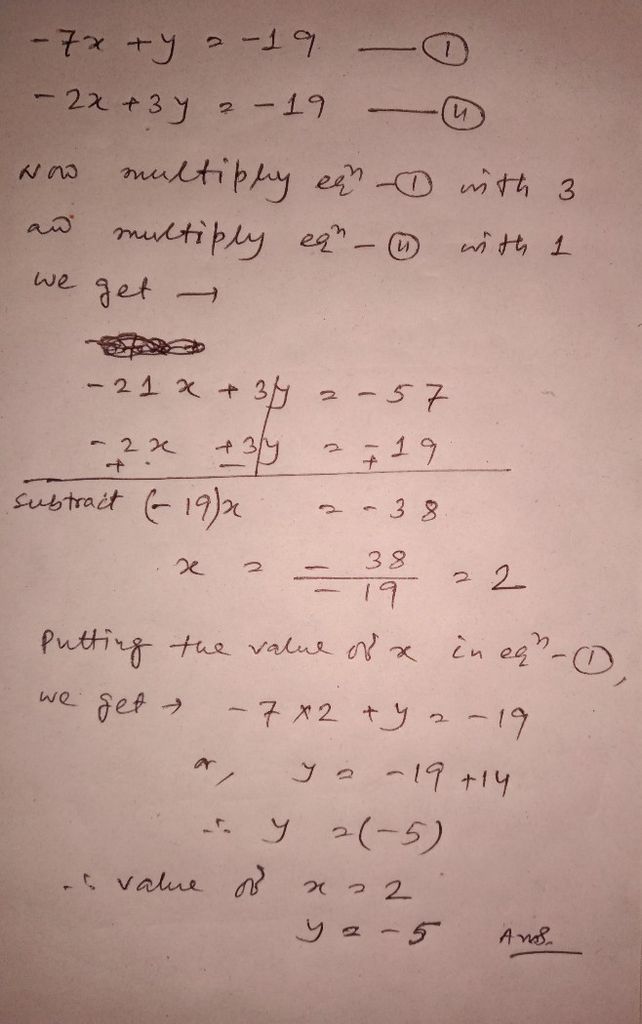 -7x + y = -19 —(I)
-2x + 3y = -19 —(II)
Now multiply eqⁿ -(I) with 3
and multiply eqⁿ -(II) with 1
we get →
-21x + 3y = -57
-2x + 3y = -19
+ - +
subtract (-19)x = -38
x = -38/-19 = 2
Putting the value of x in eqⁿ -(I),
we get → -7×2 + y = -19
or, y = -19 +14
∴ y = (-5)
∴ value of x = 2
y = -5 Ans.